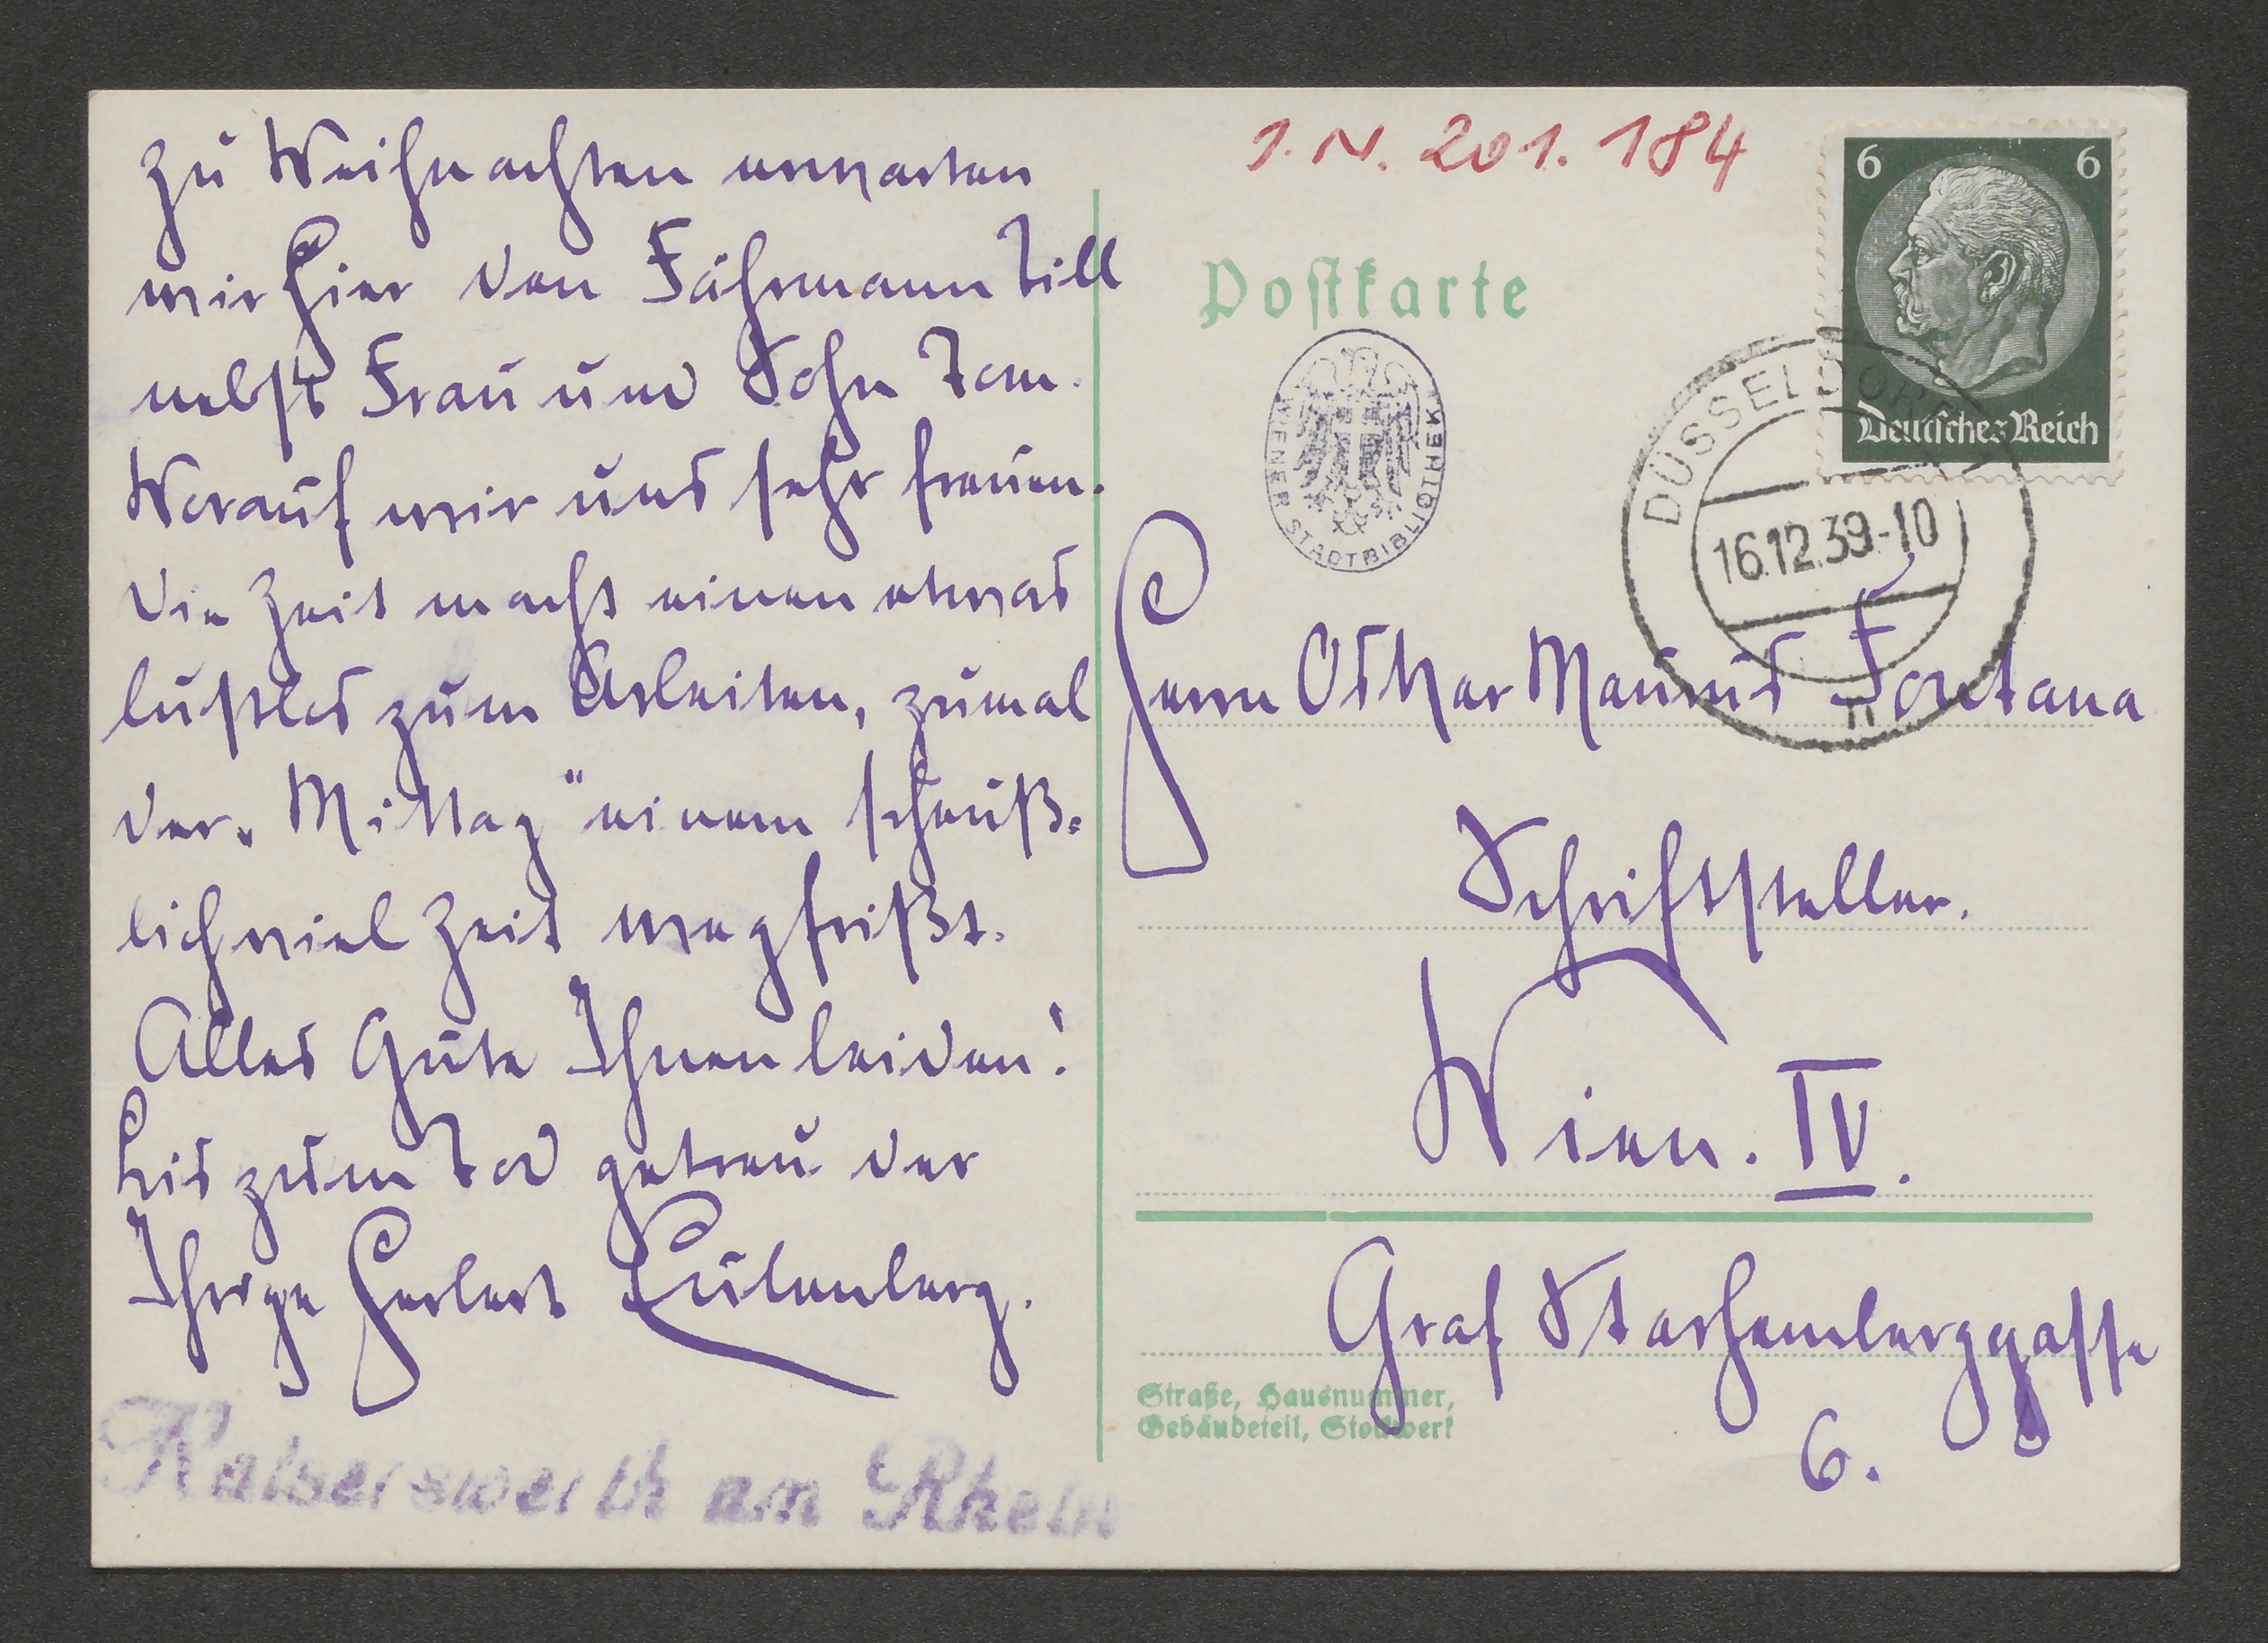 Zu Weihnachten erwarten
wir hier den Fährmann Till
nebst Frau und Sohn Tom.
Worauf wir uns sehr freuen.
Die Zeit macht einen etwas
lustlos zum Arbeiten, zumal
der „Mittag“ einem scheuß-
lich viel Zeit wegfrißt.
Alles Gute Ihnen beiden!
bis zum Tod getreu der
Ihrige Herbert Eulenberg.
Kaiserswerth am Rhein
I.N. 201.184
6 6
Deutsches Reich
Postkarte
WIENER STADTBIBLIOTHEK
DÜSSELDORF
16.12.39.-10
n
Herrn Oskar Maurus Fontana
Schriftsteller.
Wien. IV.
Graf Starhemberggasse
6.
Straße, Hausnummer,
Gebäudeteil, Stockwerk